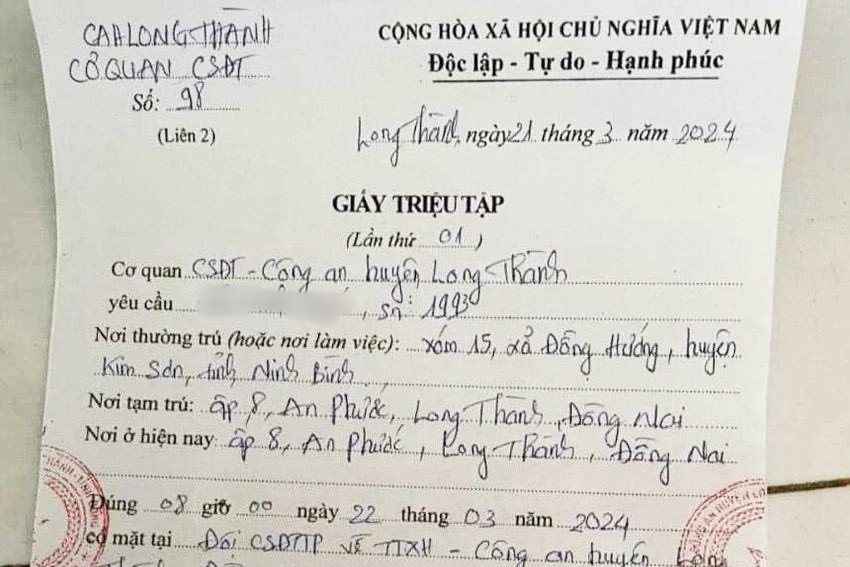 CAH LONG THÀNH
CỘNG HÒA XÃ HỘI CHỦ NGHĨA VIỆT NAM
CƠ QUAN CSĐT
Độc lập - Tự do - Hạnh phúc
Số: 98
(Liên 2)
Long Thành, ngày 21 tháng 3 năm 2024
GIẤY TRIỆU TẬP
(Lần thứ 01)
Cơ quan CSĐT - Công an huyện Long Thành
yêu cầu , sn: 1993
Nơi thường trú (hoặc nơi làm việc): xóm 15, xã Đồng Hướng, huyện
Kim Sơn, tỉnh Ninh Bình
Nơi tạm trú: ấp 8, An Phước, Long Thành, Đồng Nai
Nơi ở hiện nay: ấp 8, An Phước, Long Thành, Đồng Nai
Đúng 08 giờ 00 ngày 22 tháng 03 năm 2024
có mặt tại Đội CSĐTTP về TTXH - Công an huyện Long